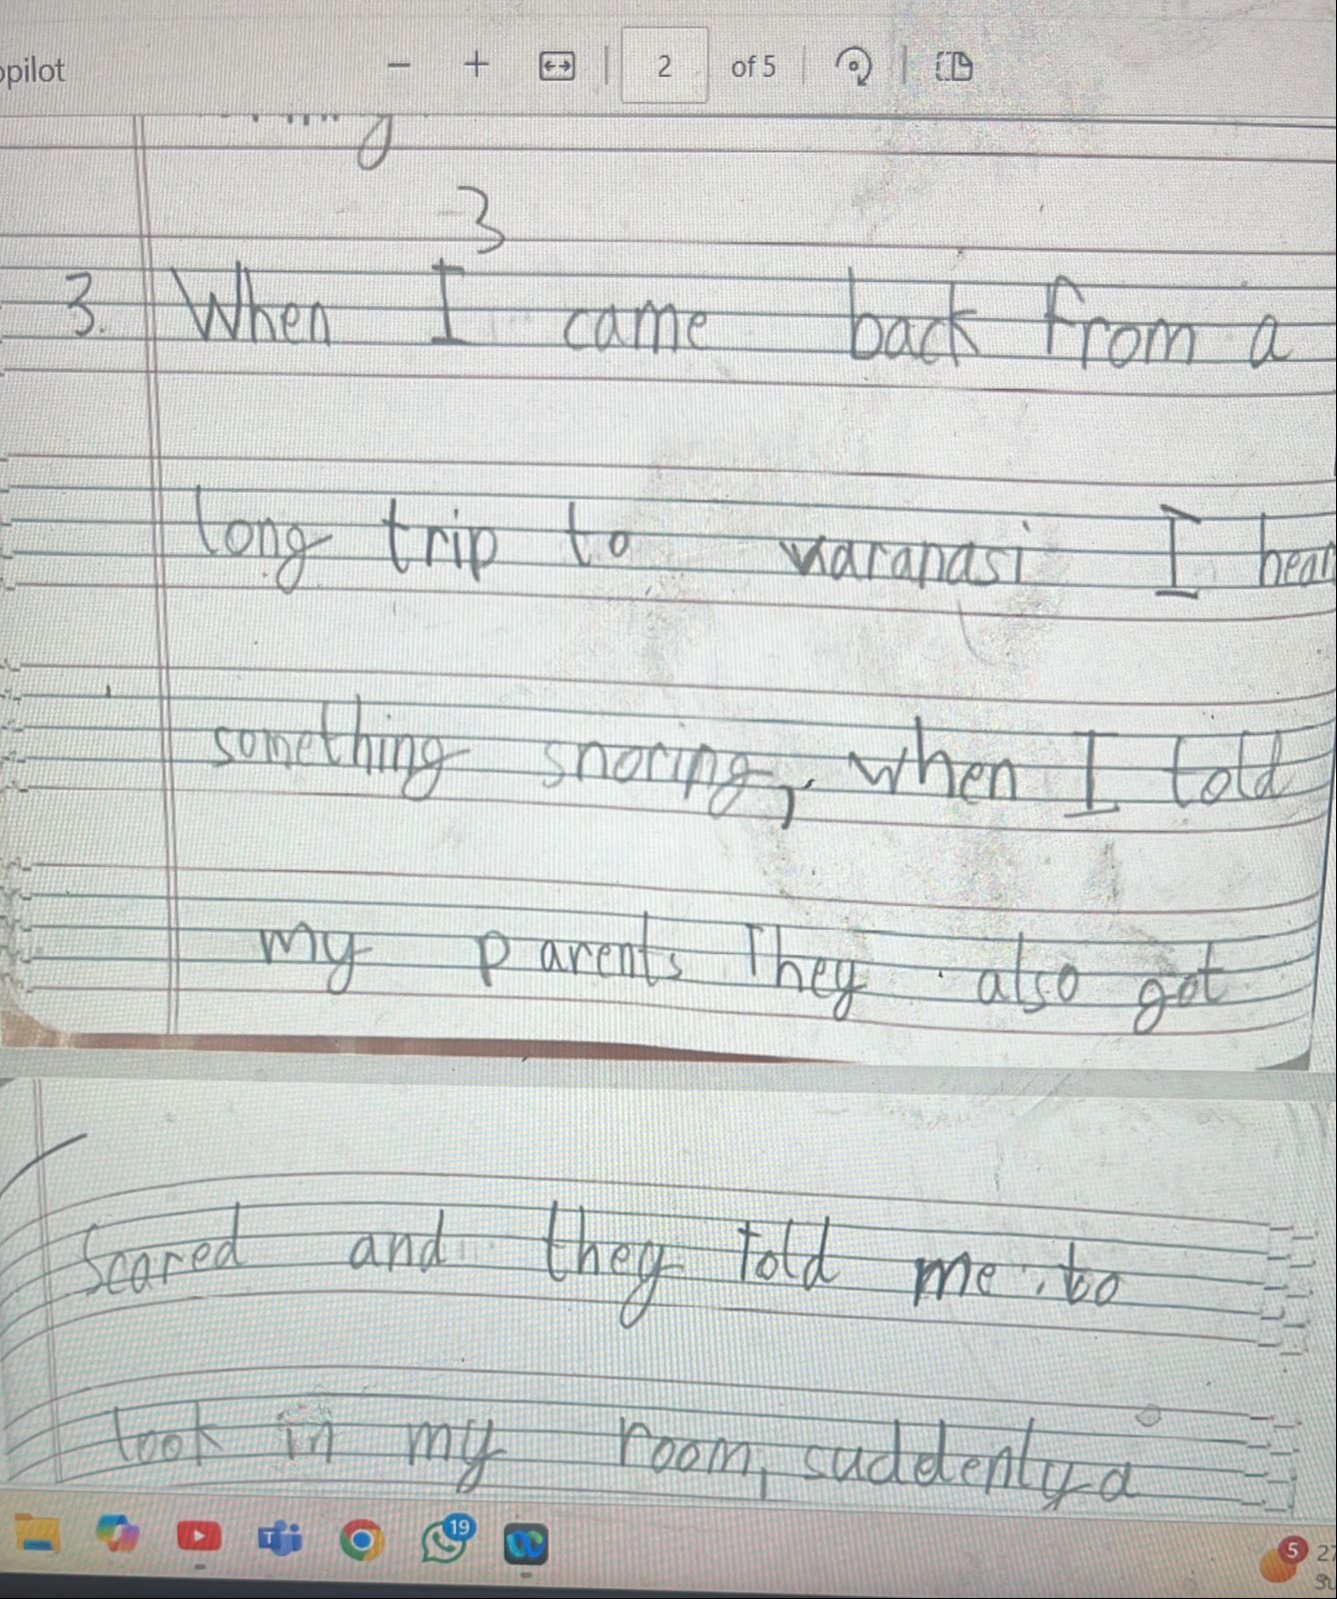 pilot
2 of 5
3
3. When I came back from a
long trip to varanasi I hear
something snoring, when I told
my parents They also got
Scared and they told me to
look in my room, suddenly a
19
5